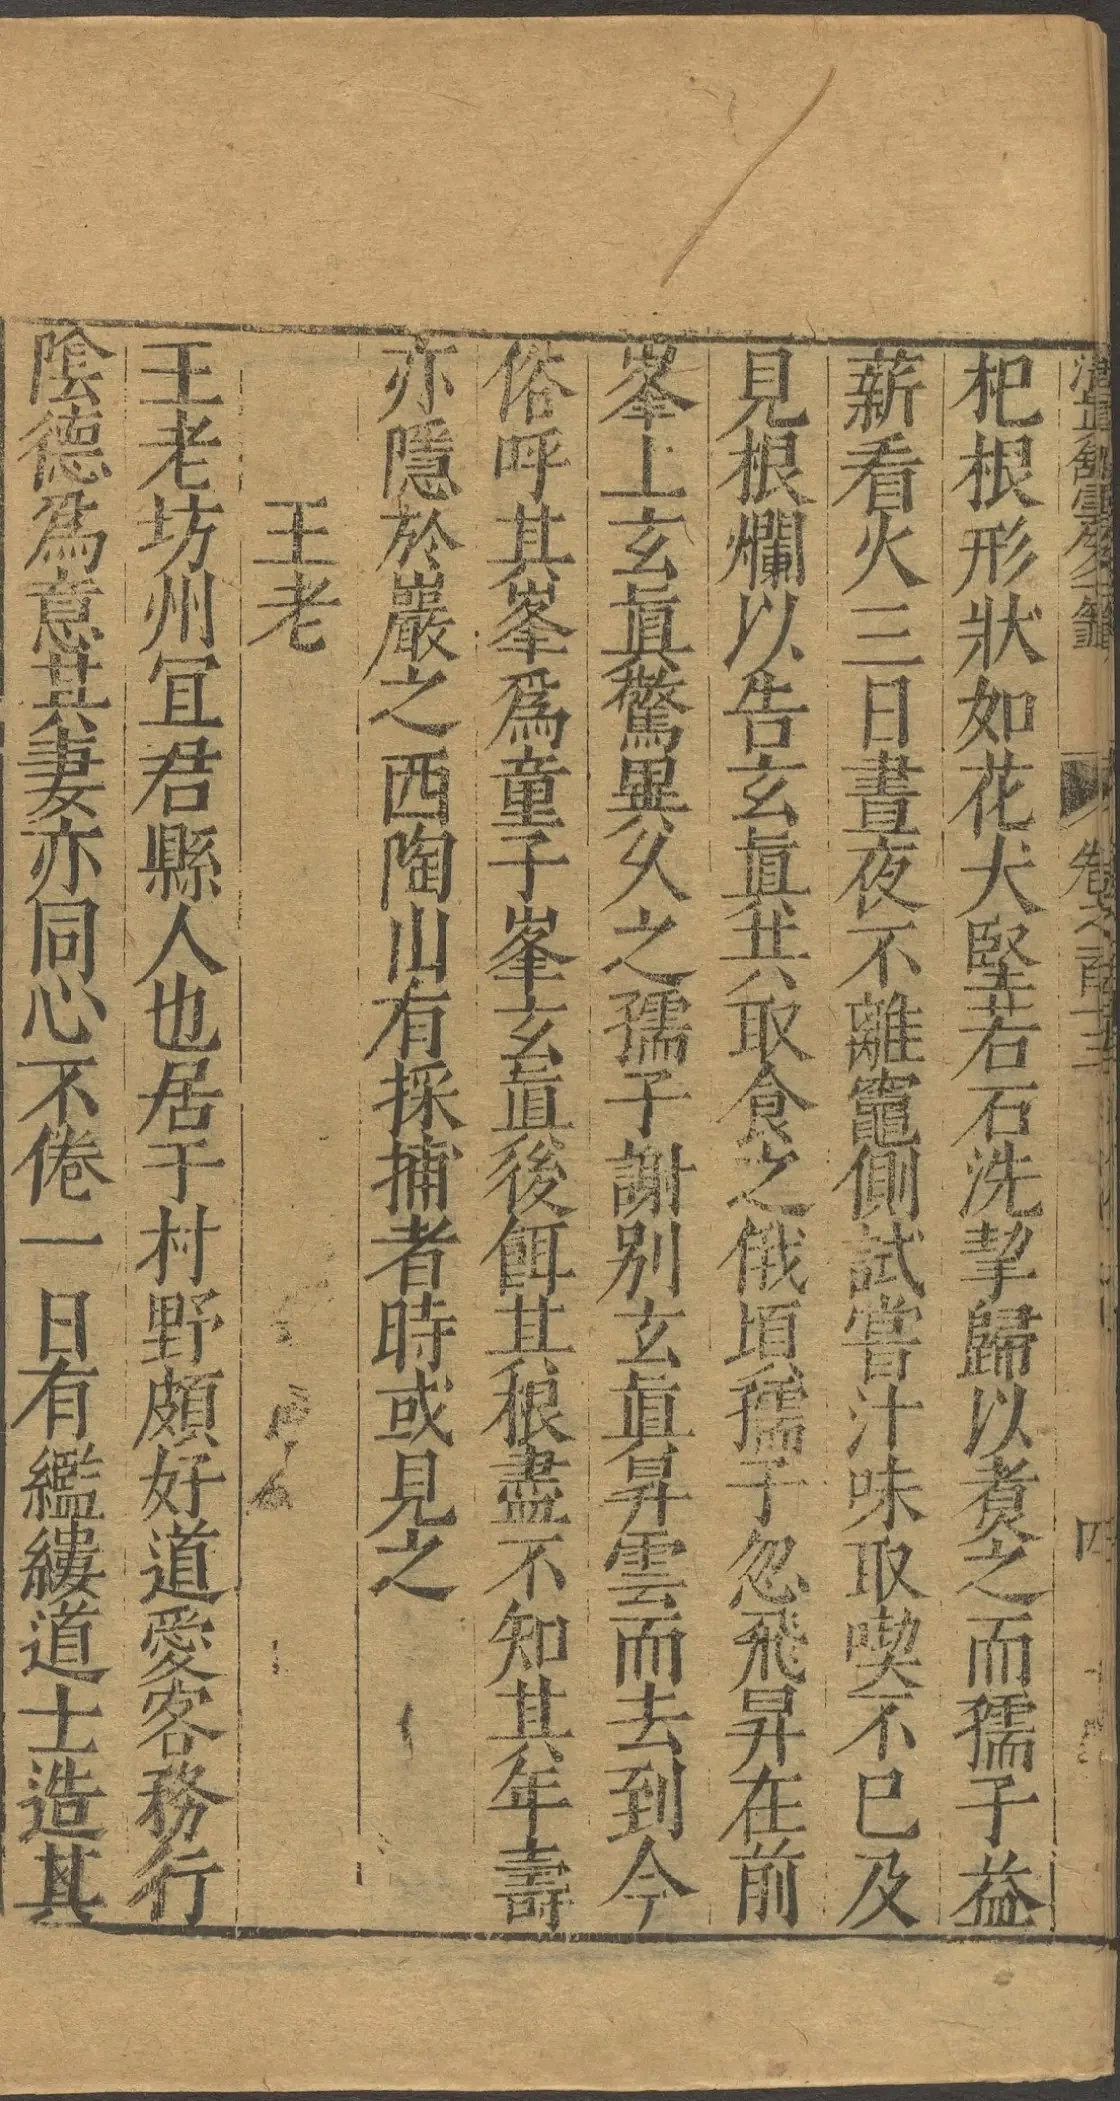 清真館雲笈七籤
卷之百十三
四
杞根形狀如花犬堅若石洗挈歸以煑之而孺子益
薪看火三日晝夜不離竈側試嘗汁味取喫不已及
見根爛以告玄眞共取食之俄頃孺子忽飛昇在前
峯上玄眞驚異久之孺子謝別玄眞昇雲而去到今
俗呼其峯爲童子峯玄眞後餌其根盡不知其年壽
亦隱於巖之西陶山有採捕者時或見之
王老
王老坊州宜君縣人也居于村野頗好道愛客務行
陰德爲意其妻亦同心不倦一日有繿縷道士造其